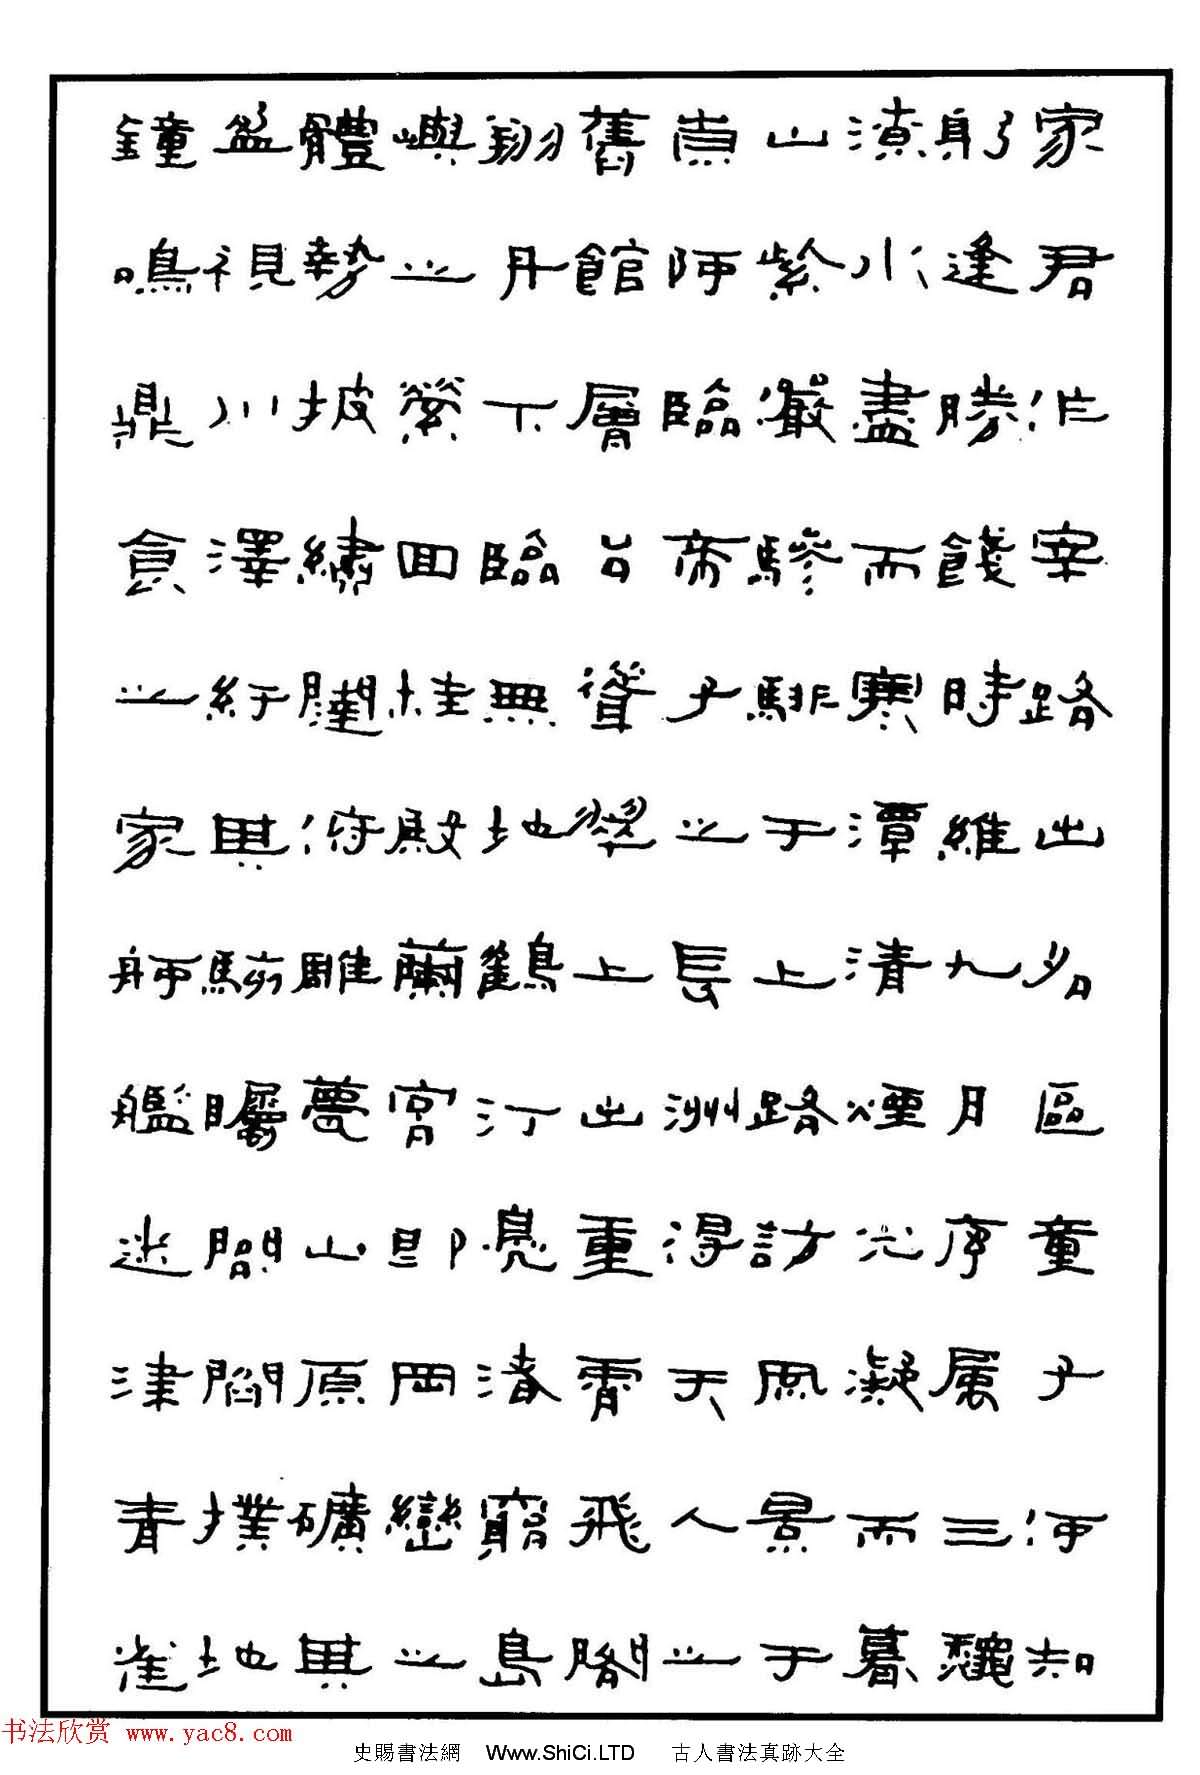 家君作宰路出名區童子何知
躬逢勝餞時維九月序屬三龝
潦水盡而寒潭清煙光凝而暮
山紫嚴驂騑于上路訪風景于
崇阿臨帝子之長洲得天人之
舊館層台聳翠上出重霄飛閣
翔丹下臨無地鶴汀鳧渚窮島
嶼之縈回桂殿蘭宮即岡巒之
體勢披繡闥俯雕甍山原礦其
盈視川澤紆其駭矚閭閻撲地
鐘鳴鼎食之家舸艦迷津青雀
书法欣赏 www.yac8.com
史賜書法網 Www.ShiCi.LTD 古人書法真跡大全